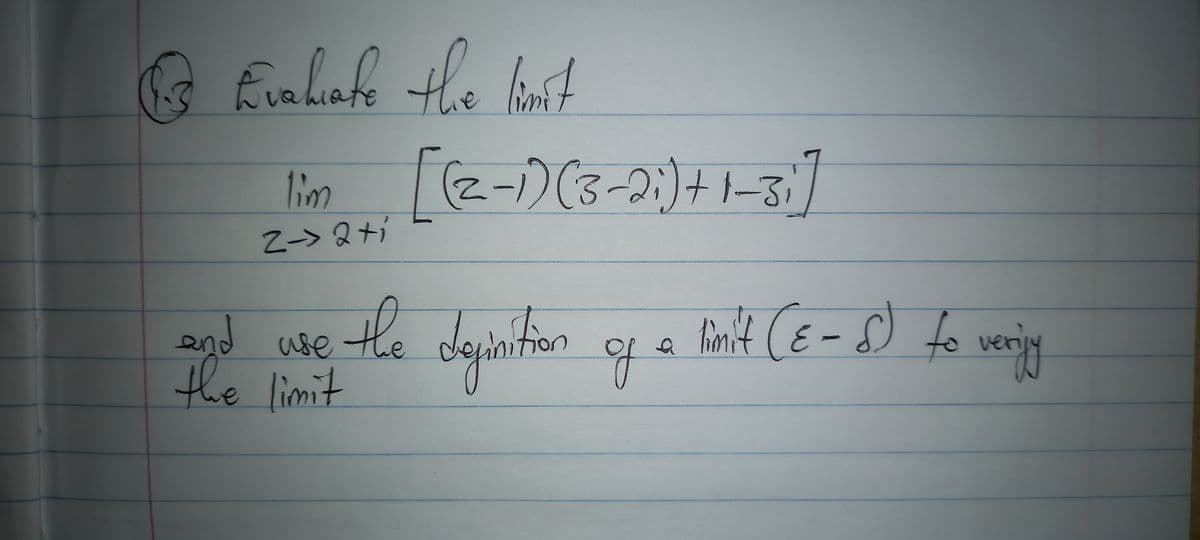 Q.3 Evaluate the limit
lim [(z-1)(3-2i)+1-3i]
z->2+i
and use the definition of a limit (ε-δ) to verify
the limit